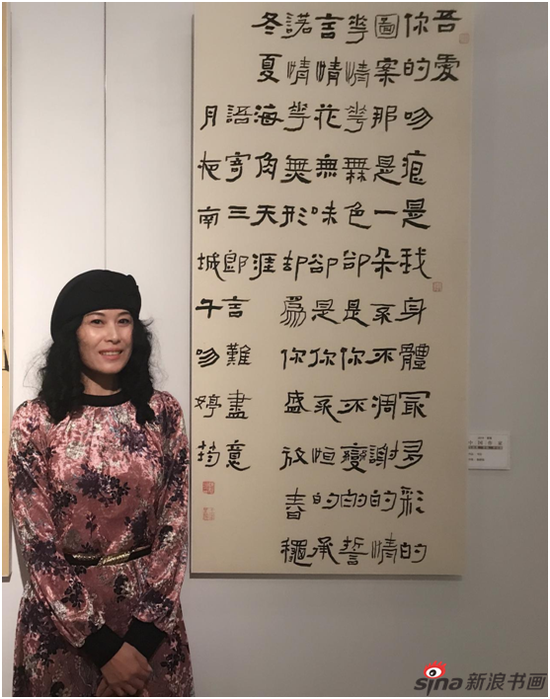 吾愛
你的吻痕是我身體最多彩的
圖案那是一朵永不凋謝的情
華情華無色卻是你不變的誓
言情花無味卻是你永恒的承
諾情華無形却為你盛放春穐
冬夏海角天涯
語寄三郎言難盡意
月夜南城午吻婷筠
sina新浪书画